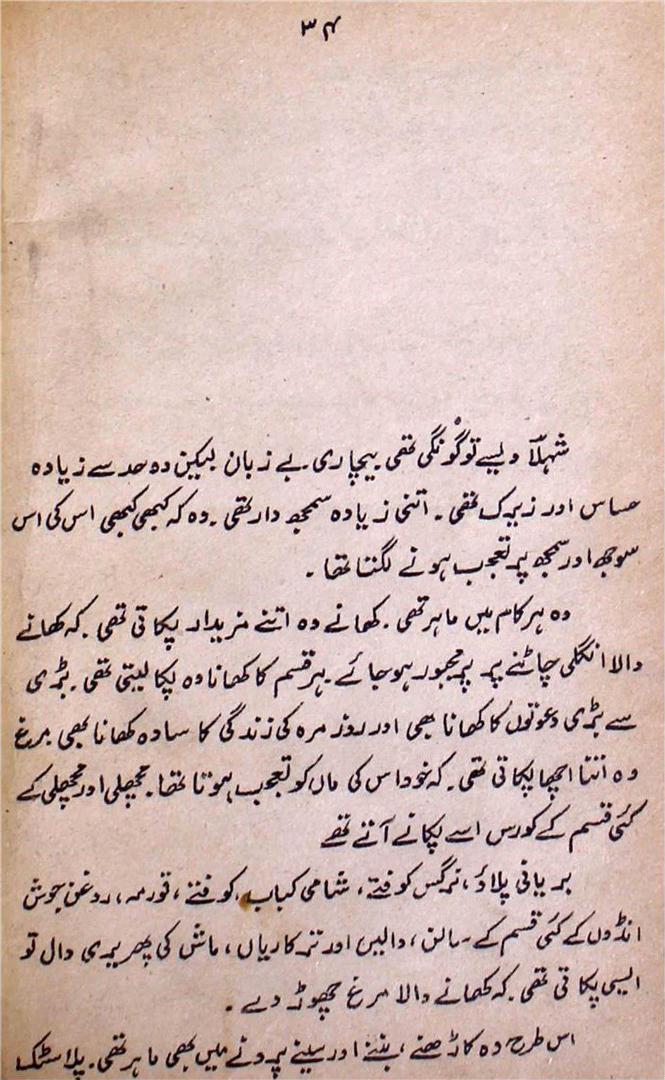 ۳۴
شہلاؔ ویسے تو گونگی تھی بیچاری۔ بے زبان لیکن وہ حد سے زیادہ
حساس اور زیرک تھی۔ اتنی زیادہ سمجھ دار تھی۔ وہ کہ کبھی کبھی اس کی اس
سوجھ اور سمجھ پر تعجب ہونے لگتا تھا۔
وہ ہر کام میں ماہر تھی۔ کھانے وہ اتنے مزیدار پکاتی تھی۔ کہ کھانے
والا انگلی چاٹنے پر پر مجبور ہو جائے۔ ہر قسم کا کھانا وہ پکا لیتی تھی۔ بڑی
سے بڑی دعوتوں کا کھانا بھی اور روز مرہ کی زندگی کا سادہ کھانا بھی۔ مرغ
وہ اتنا اچھا پکاتی تھی۔ کہ خود اس کی ماں کو تعجب ہوتا تھا۔ مچھلی اور مچھلی کے
کئی قسم کے کورس اسے پکانے آتے تھے
بریانی پلاؤ، نرگس کوفتے، شامی کباب، کوفتے، قورمہ، روغن جوش
انڈوں کے کئی قسم کے سالن، دالیں اور ترکاریاں، ماش کی پھریری دال تو
ایسی پکاتی تھی۔ کہ کھانے والا مرغ چھوڑ دے۔
اس طرح وہ کاڑھنے، بننے اور سینے پرونے میں بھی ماہر تھی۔ پلاسٹک